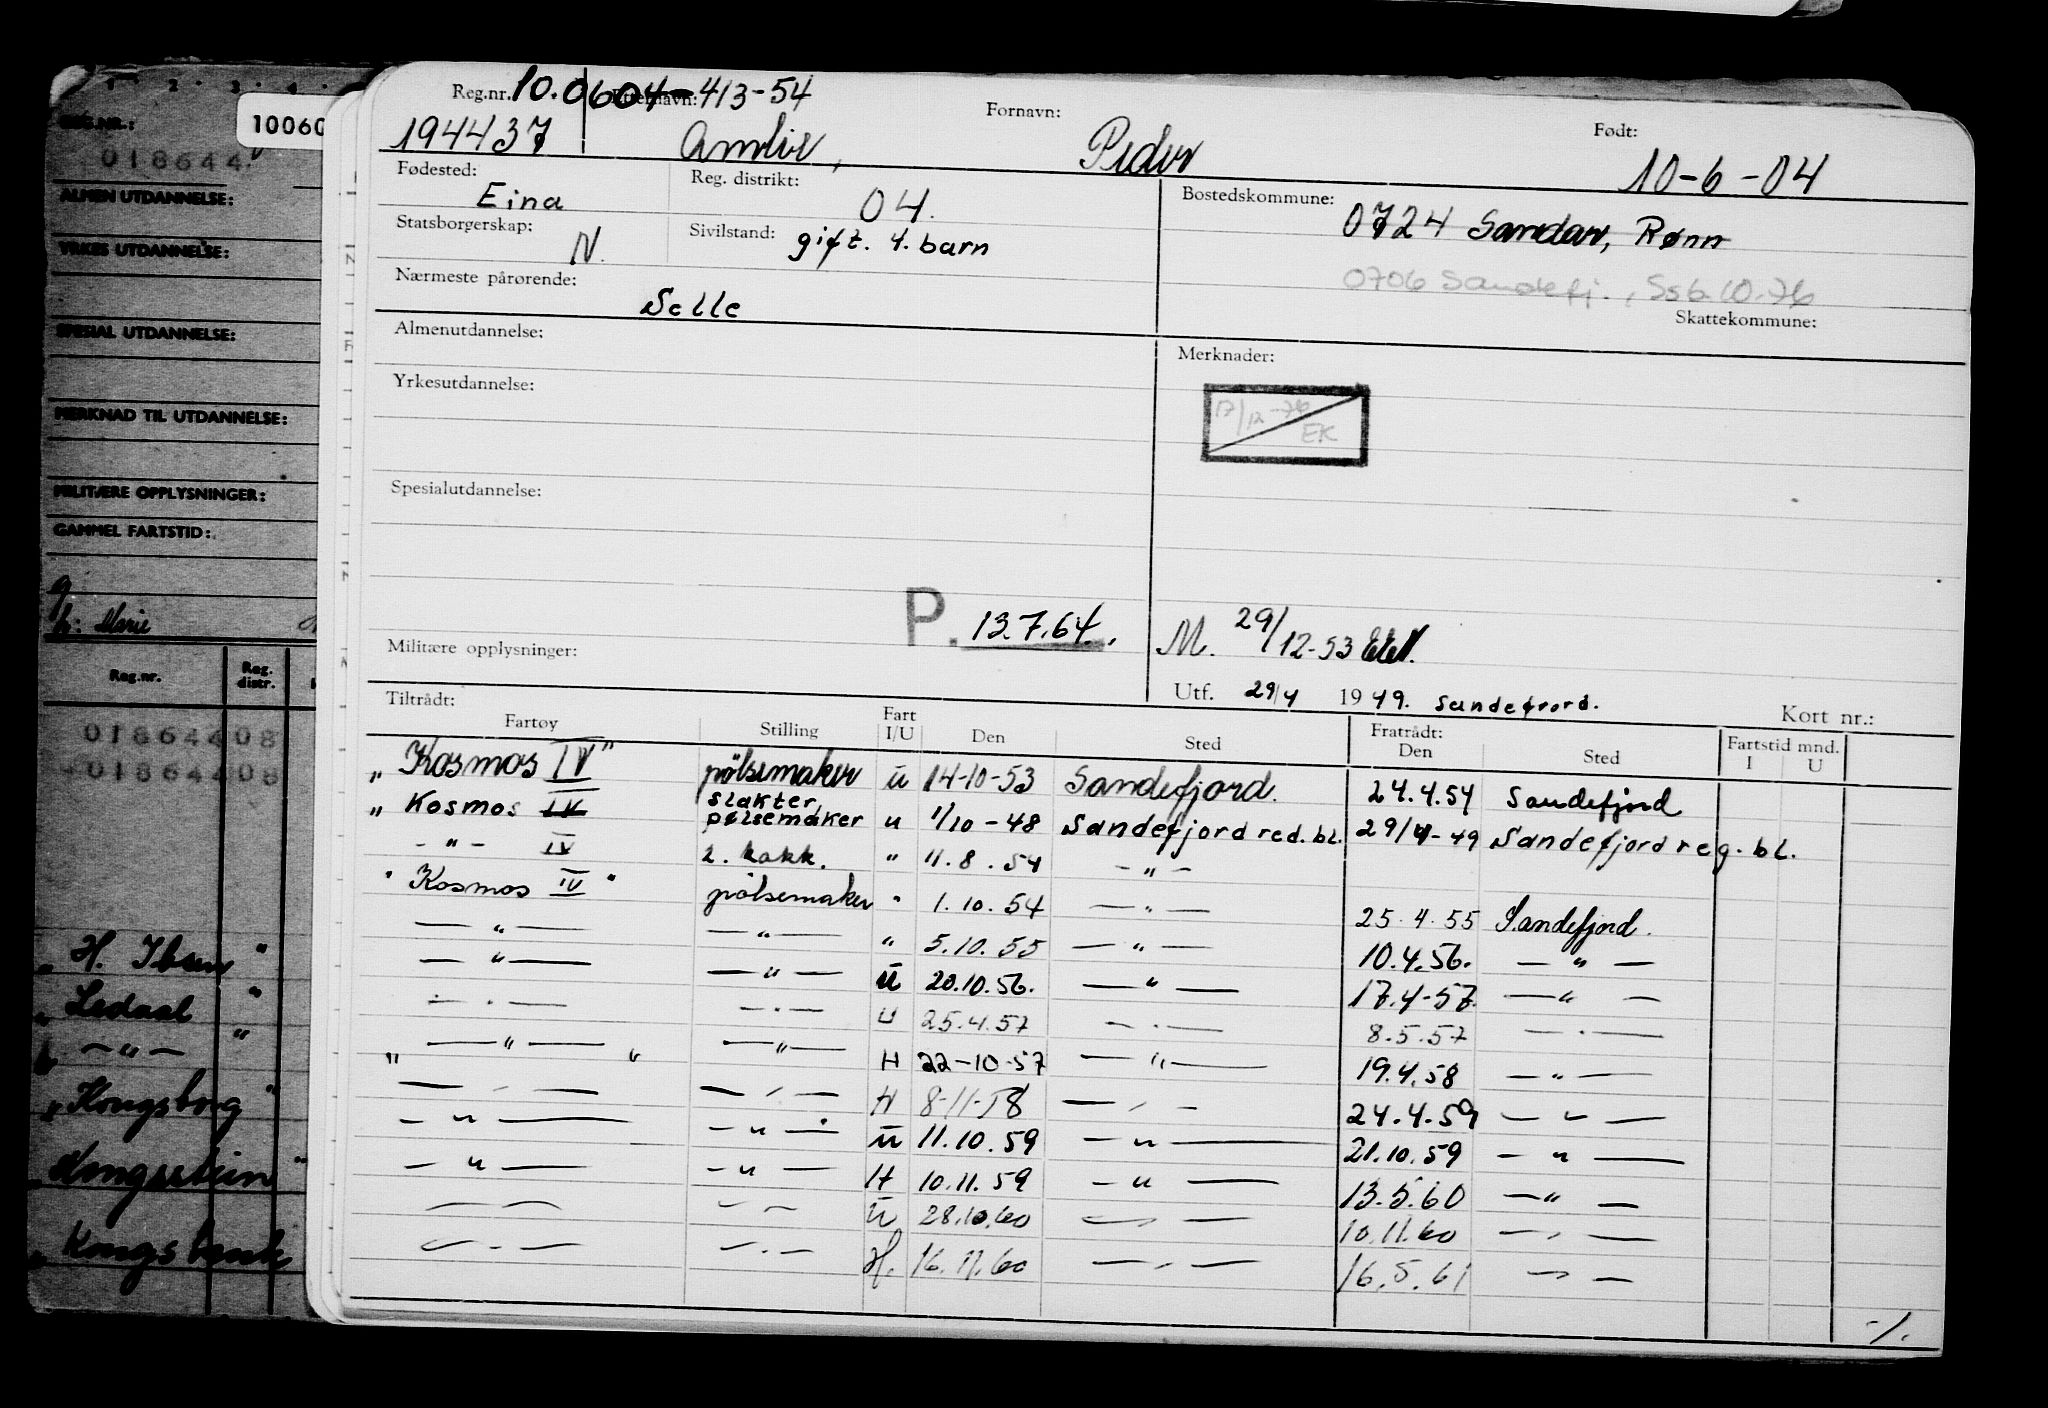 Reg.nr. 10.0604-413-54 Etternavn: Fornavn: Født:
194437 Amlie, Peder 10-6-04
Fødested: Eina Reg. distrikt: 04. Bostedskommune: 0724 Sandar, Rønn
Statsborgerskap: N. Sivilstand: gift. 4. barn
0706 Sandefj., Ssb. 10.76
Nærmeste pårørende: Selle
Skattekommune:
Almenutdannelse: Merknader:
Yrkesutdannelse:
17/12-76 EK
Spesialutdannelse:
P. 13.7.64.
M. 29/12-53
Militære opplysninger:
Utf. 29/4 1949. Sandefjord.
Kort nr.:
Tiltrådt: Fratrådt: Fartstid mnd.
Fartøy Stilling Fart I/U Den Sted Den Sted I U
„ Kosmos IV" pölsemaker u 14-10-53 Sandefjord. 24.4.54 Sandefjord
„ Kosmos IV slakter, pølsemaker u 1/10-48 Sandefjord red. bl. 29/4-49 Sandefjord reg. bl.
- " - IV 2. kokk. " 11.8.54 - " -
" Kosmos IV " pölsemaker " 1.10.54 - " - 25.4.55 Sandefjord.
- " - - " - " 5.10.55 - " - 10.4.56. - " -
- " - - " - u 20.10.56. - " - 17.4-57. - " -
- " - - " - u 25.4.57 - " - 8.5.57 - " -
„ - " - " - " - H 22-10-57 - " - 19.4.58 - " -
- " - - " - H 8-11-58 - " - 24.4.59 - " -
- " - - " - u 11.10.59 - " - 21.10.59 - " -
- " - - " - H 10.11.59 - " - 13.5.60 - " -
- " - - " - u 28.10.60 - " - 10.11.60 - " -
- " - - " - H. 16.11.60 - " - 16.5.61 - " -
-/.
10060
REG.NR.:
018644
ALMEN UTDANNELSE:
YRKES UTDANNELSE:
SPESIAL UTDANNELSE:
MERKNAD TIL UTDANNELSE:
MILITÆRE OPPLYSNINGER:
GAMMEL FARTSTID:
g
h: Marie
Reg.nr. Reg. distr.
01864408
01864408
„ H. Ibsen "
„ Ledaal "
- " - "
„ Kongsborg "
„ Kongsstein "
„ Kongsbank